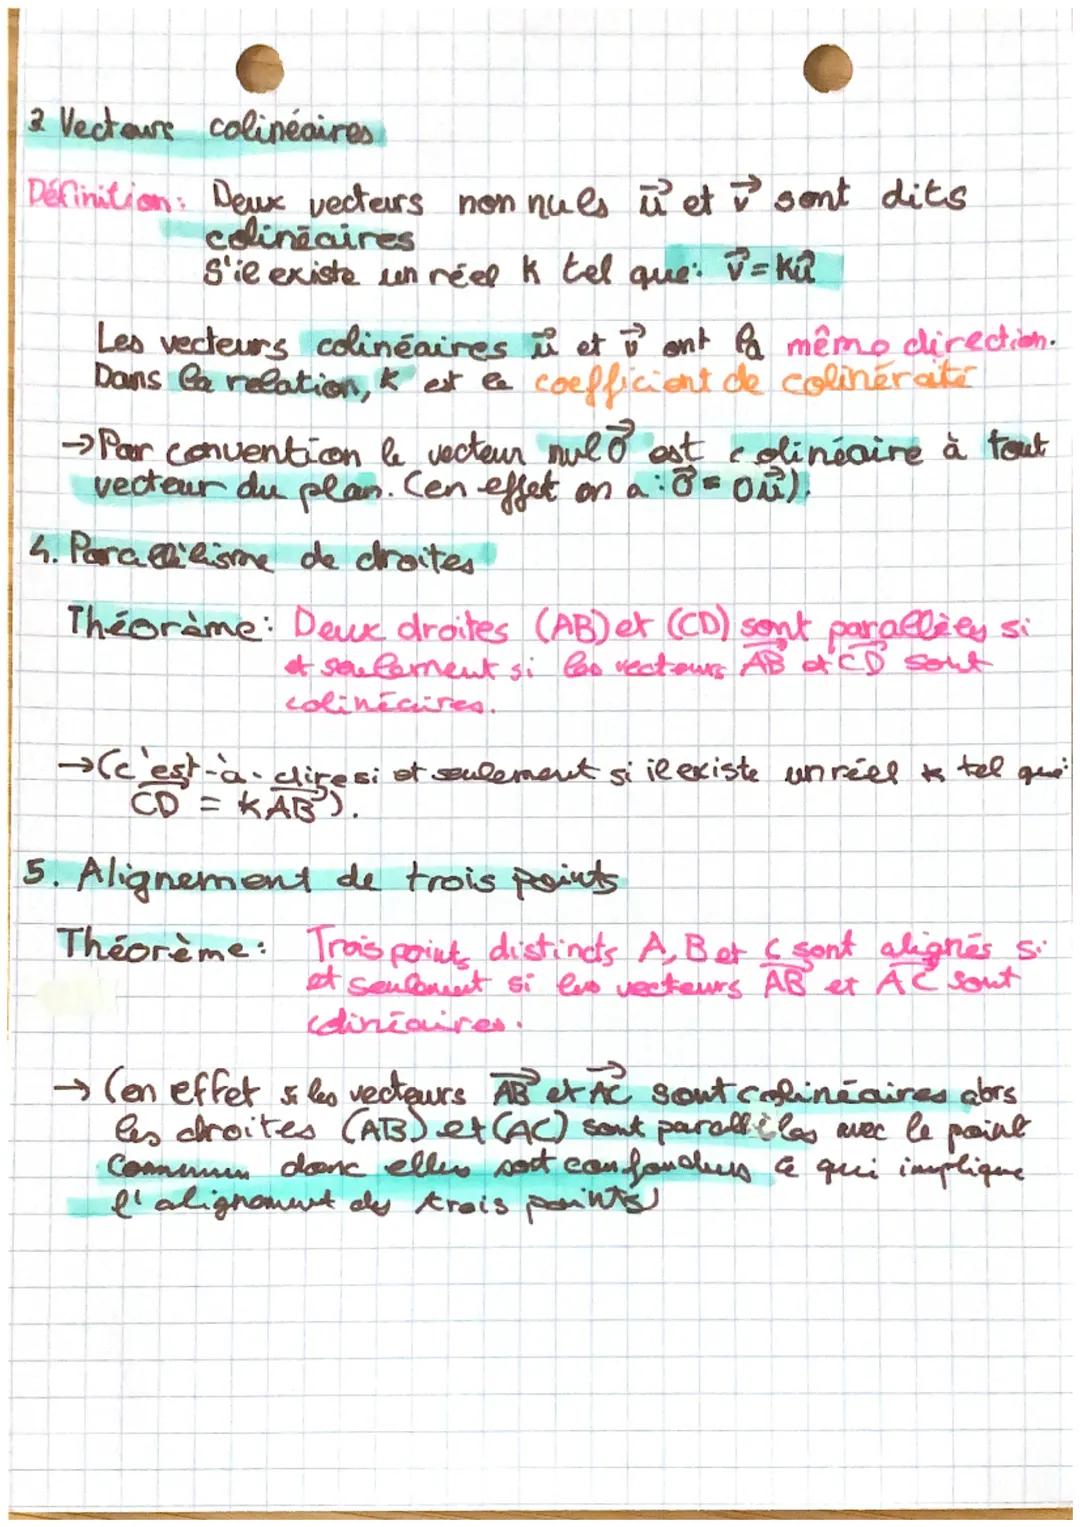 3 Vecteurs colinéaires
Définition: Deux vecteurs non nuls u⃗ et v⃗ sont dits
colinéaires
S'il existe un réel k tel que: v⃗ = ku⃗
Les vecteurs colinéaires u⃗ et v⃗ ont la même direction.
Dans la relation, k est le coefficient de colinéraité
→ Par convention le vecteur nul 0⃗ est colinéaire à tout
vecteur du plan. (en effet on a : 0⃗ = 0u⃗).
4. Parallèlisme de droites
Théorème: Deux droites (AB) et (CD) sont parallèles si
et seulement si les vecteurs AB⃗ et CD⃗ sont
colinéaires.
→ (c'est-à-dire si et seulement si il existe un réel k tel que:
CD⃗ = kAB⃗).
5. Alignement de trois points
Théorème: Trois points distincts A, B et C sont alignés si
et seulement si les vecteurs AB⃗ et AC⃗ sont
colinéaires.
→ (en effet si les vecteurs AB⃗ et AC⃗ sont colinéaires alors
les droites (AB) et (AC) sont parallèles avec le point
commun donc elles sont confondues ce qui implique
l'alignement des trois points)